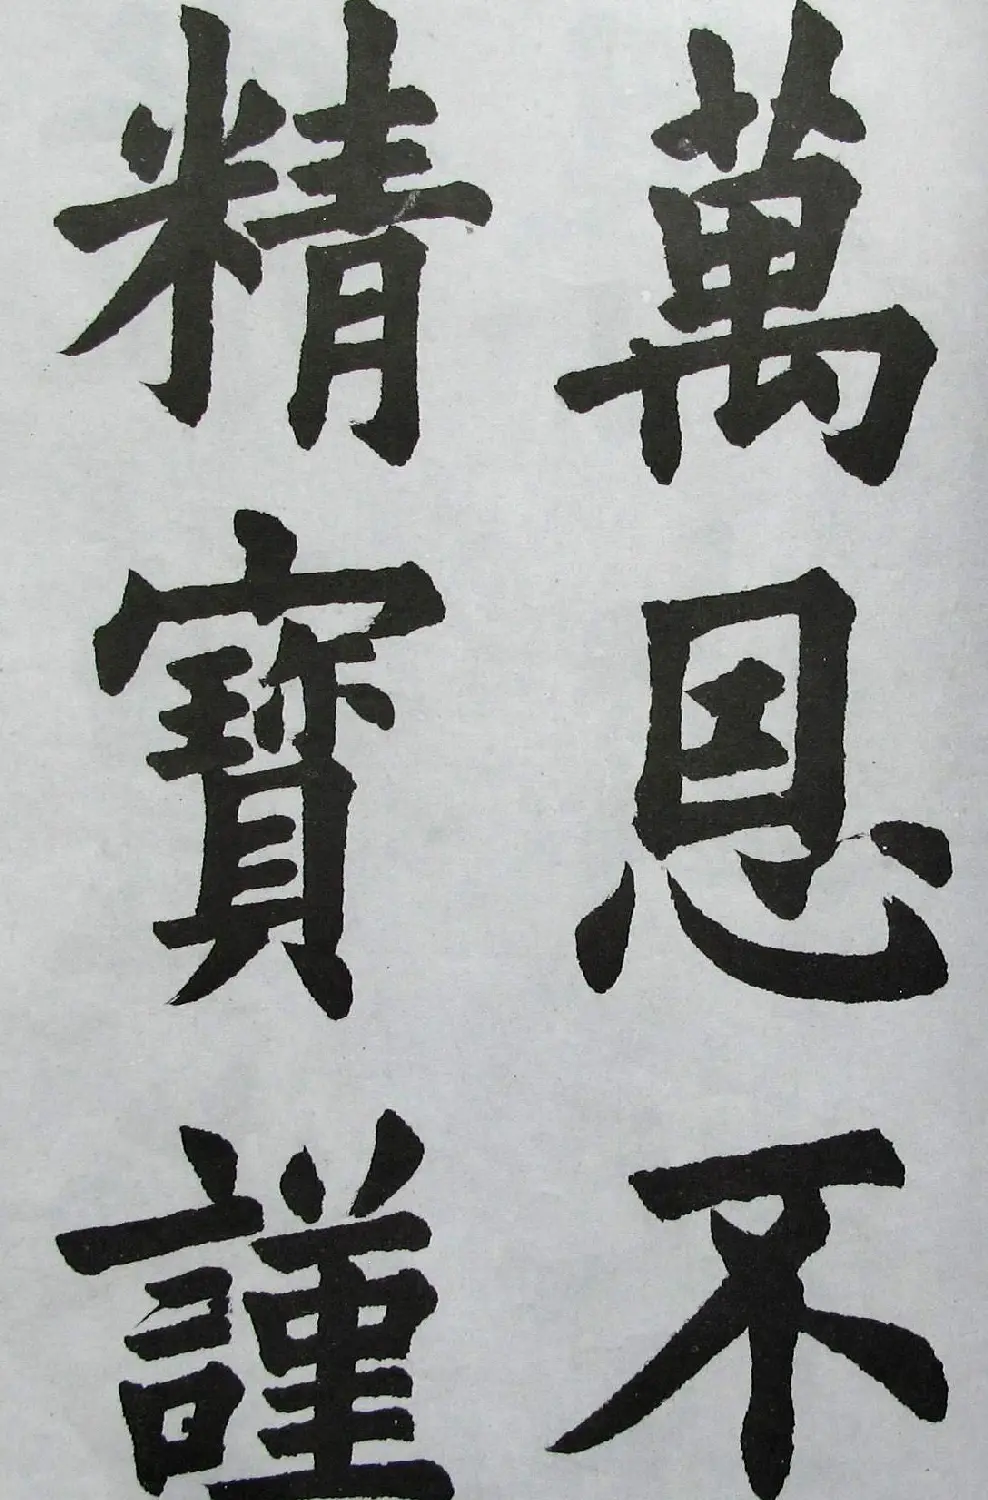 萬恩不
精寶謹